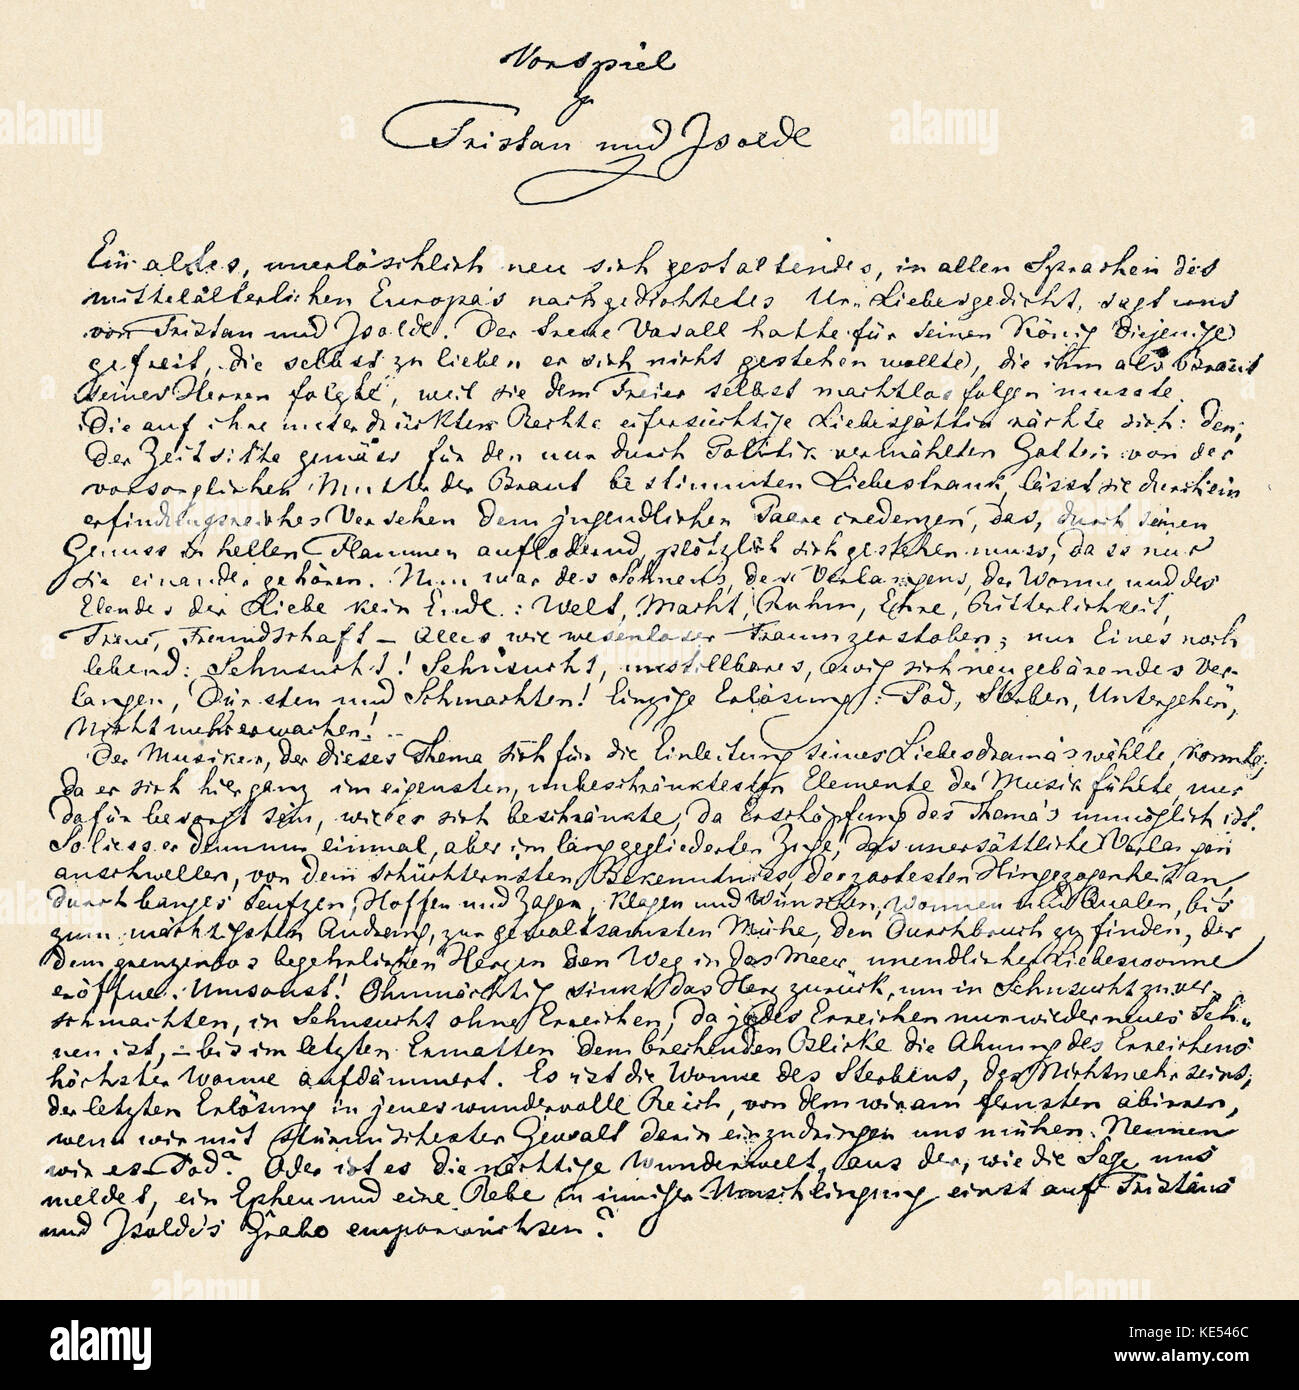 Vorspiel
zu
Tristan und Isolde
Ein altes, unerlöschlich neu sich gestaltendes, in allen Sprachen des
mittelälterlichen Europa's nachgedichtetes Ur-Liebesgedicht, sagt uns
von Tristan und Isolde. Der treue Vasall hatte für seinen König diejenige
gefreit, die selbst zu lieben er sich nicht gestehen wollte, die ihm als Braut
seines Herren folgte, weil sie dem Freier selbst machtlos folgen musste.
Die auf ihre unterdrückten Rechte eifersüchtige Liebesgöttin rächte sich: den,
der Zeitsitte gemäss für den nur durch Politik vermählten Gatten von der
vorsorglichen Mutter der Braut bestimmten Liebestrank, lässt sie durch ein
erfindungsreiches Versehen dem jugendlichen Paare credenzen, das, durch seinen
Genuss in hellen Flammen auflodernd, plötzlich sich gestehen muss, dass nur
sie einander gehören. Nun war des Sehnens, des Verlangens, der Wonne und des
Elendes der Liebe kein Ende: Welt, Macht, Ruhm, Ehre, Ritterlichkeit,
Treue, Freundschaft – Alles wie wesenloser Traum zerstoben; nur Eines noch
lebend: Sehnsucht! Sehnsucht, unstillbares, ewig sich neu gebärendes Ver-
langen, Dürsten und Schmachten! Einzige Erlösung: Tod, Sterben, Untergehen,
Nichtmehrerwachen! ..
Der Musiker, der dieses Thema sich für die Einleitung seines Liebesdrama's wählte, konnte,
da er sich hier ganz im eigensten, unbeschränktesten Elemente der Musik fühlte, nur
dafür besorgt sein, wie er sich beschränkte, da Erschöpfung des Thema's unmöglich ist.
So liess er denn nur einmal, aber im lang gegliederten Zuge, das unersättliche Verlangen
anschwellen, von dem schüchternsten Bekenntniss der zartesten Hingezogenheit an
durch banges Seufzen, Hoffen und Zagen, Klagen und Wünschen, Wonnen und Qualen, bis
zum mächtigsten Andrang, zur gewaltsamsten Mühe, den Durchbruch zu finden, der
dem grenzenlos begehrlichen Herzen den Weg in das Meer unendlicher Liebeswonne
eröffne. Umsonst! Ohnmächtig sinkt das Herz zurück, um in Sehnsucht zu ver-
schmachten, in Sehnsucht ohne Erreichen, da jedes Erreichen nur wieder neues Seh-
nen ist, – bis im letzten Ermatten dem brechenden Blicke die Ahnung des Erreichens
höchster Wonne aufdämmert. Es ist die Wonne des Sterbens, des Nichtmehrseins,
der letzten Erlösung in jenes wundervolle Reich, von dem wir am fernsten abirren,
wenn wir mit stürmischester Gewalt darin einzudringen uns mühen. Nennen
wir es Tod? Oder ist es die nächtige Wunderwelt, aus der, wie die Sage uns
meldet, ein Epheu und eine Rebe in inniger Umschlingung einst auf Tristans
und Isolde's Grabe emporwuchsen?
alamy
Image ID: KE546C
www.alamy.com